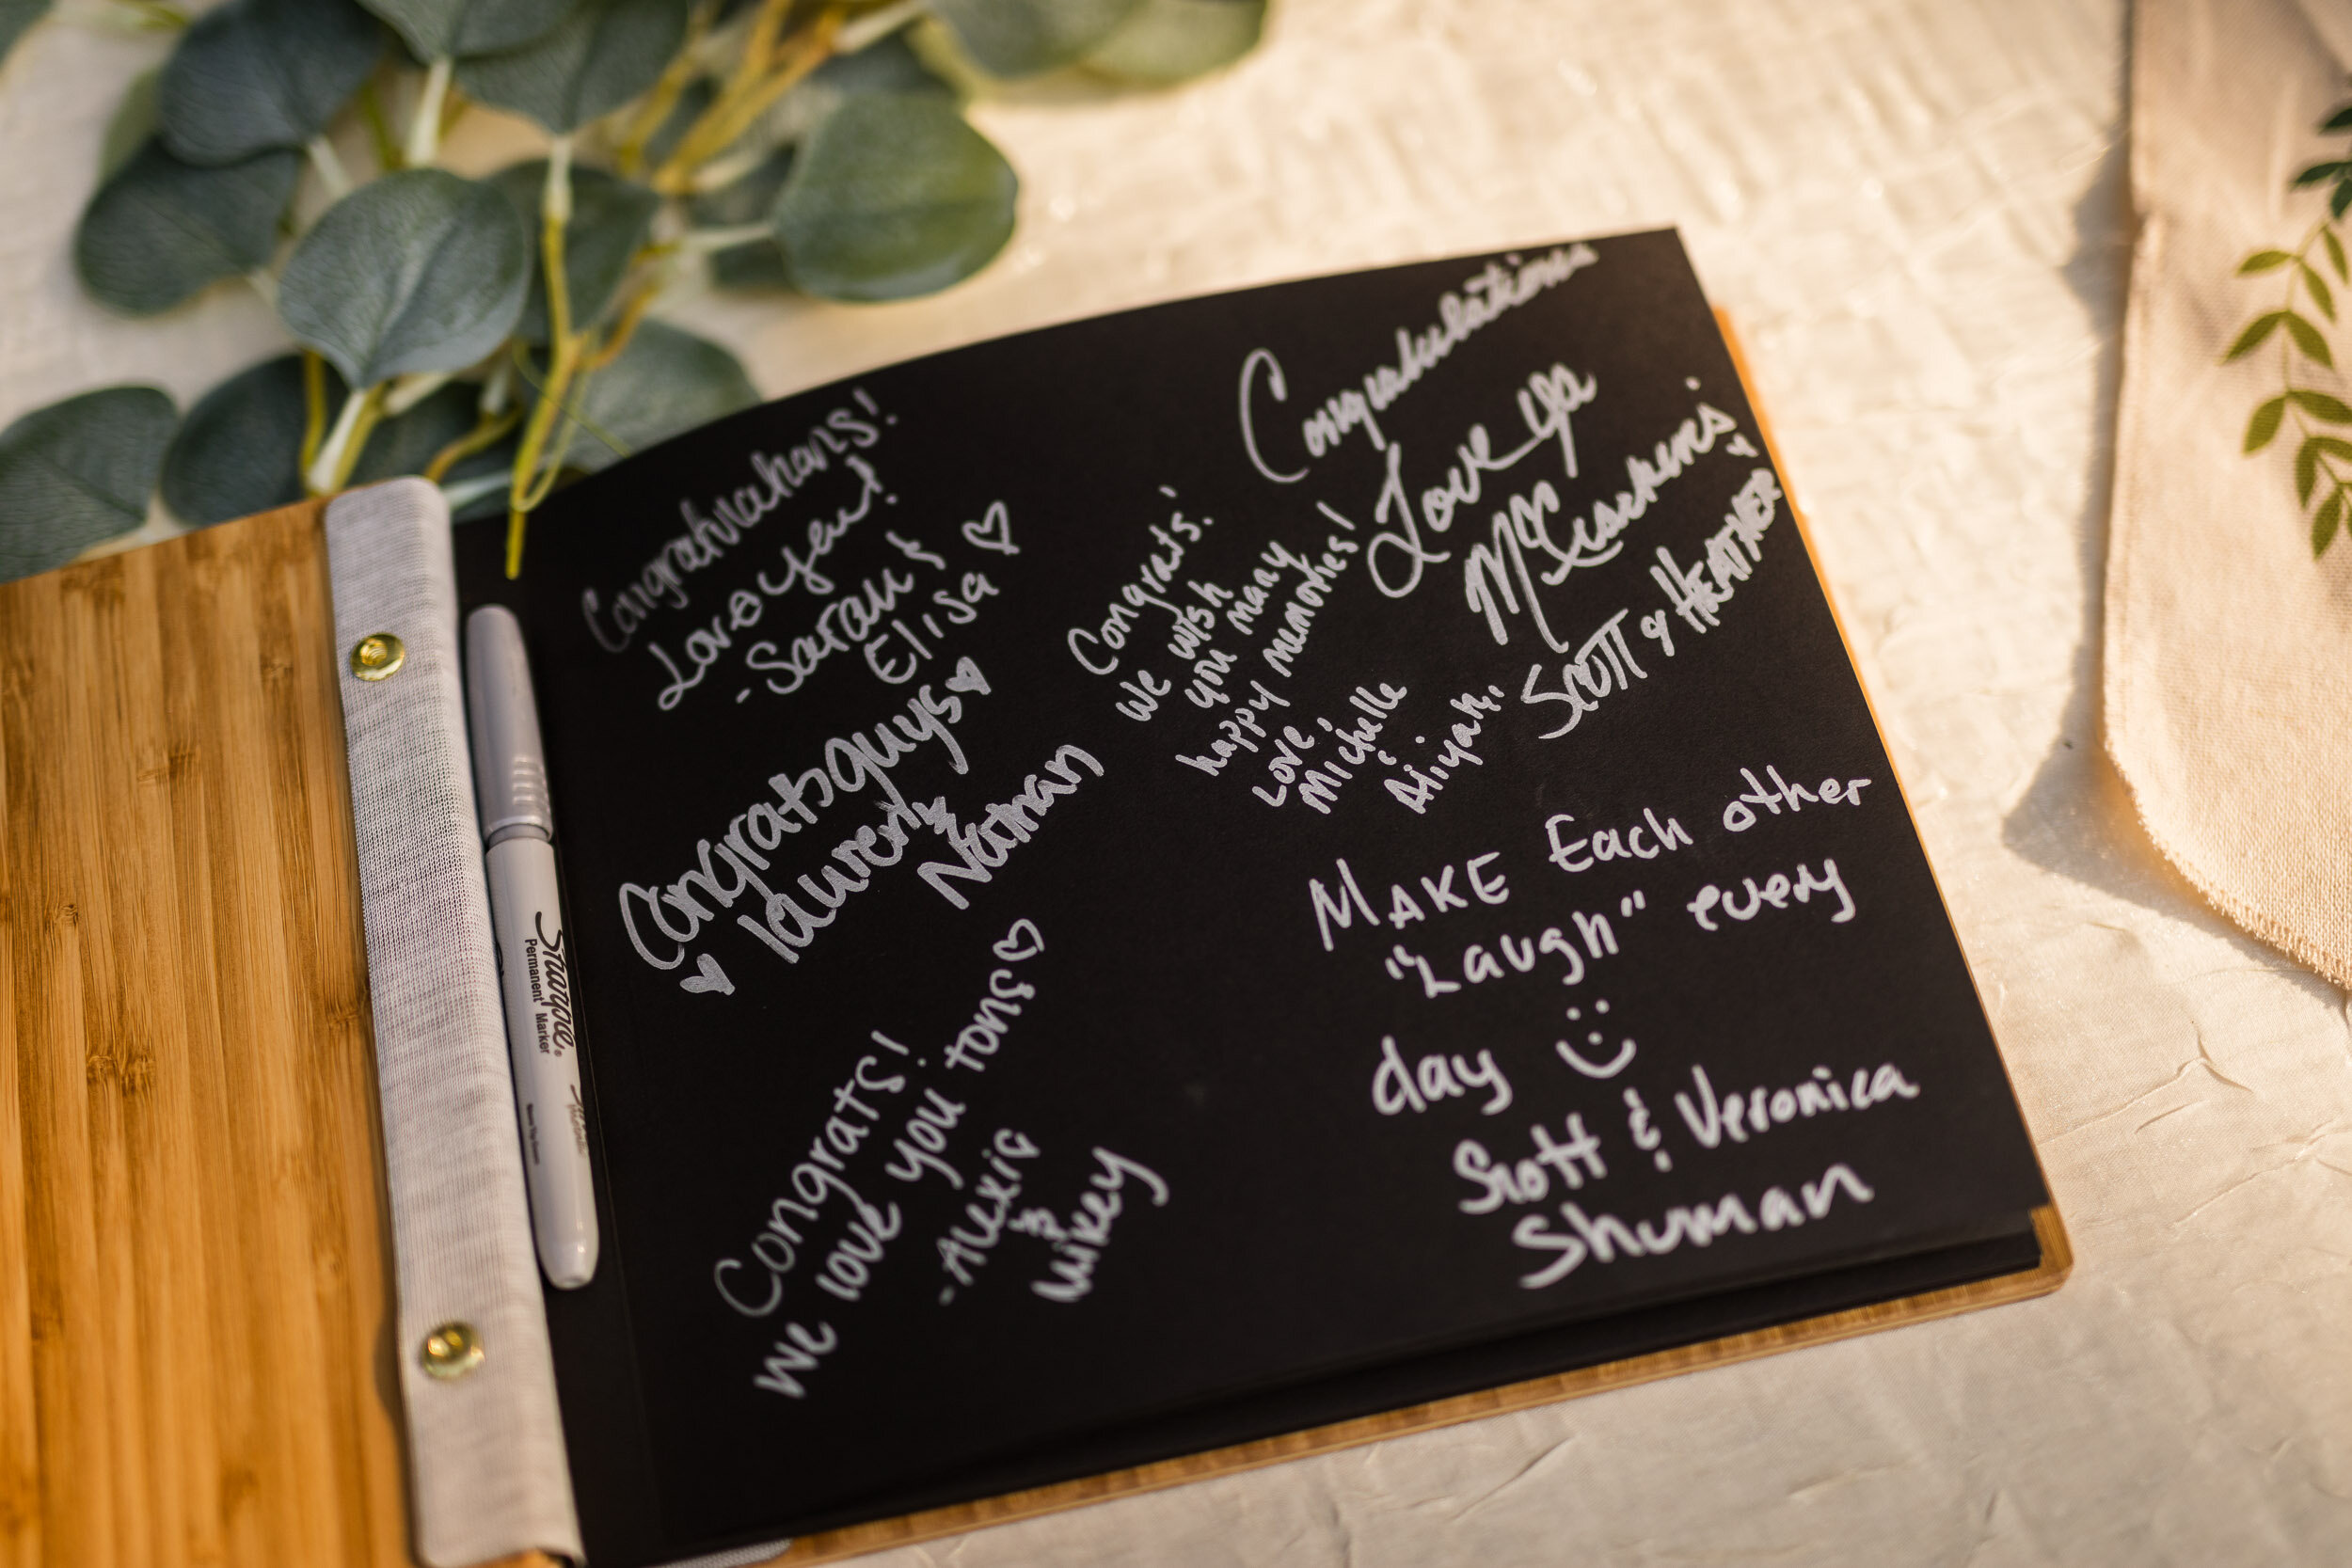 Congratulations!
Love you!
-Sarah &
Elisa ♡
Congrats guys ♥
♥ lauren &
Nathan
Congrats!
We love you tons ♡
-Alexia
&
Mikey
Congratulations
Love Ya
Scott & HEATHER
Congrats!
We wish
you many
happy memories!
Love,
Michelle
&
Aliyah
MAKE Each other
"Laugh" every
day
Scott & Veronica
Shuman
Sharpie
Permanent Marker